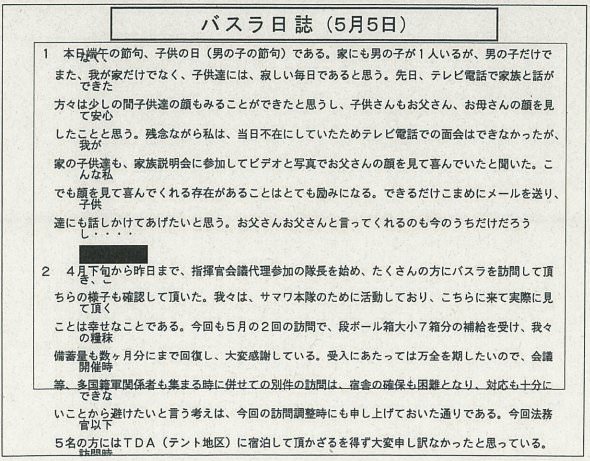 バスラ日誌（5月5日）
１　本日端午の節句、子供の日（男の子の節句）である。家にも男の子が１人いるが、男の子だけで
なく、
また、我が家だけでなく、子供達には、寂しい毎日であると思う。先日、テレビ電話で家族と話が
できた
方々は少しの間子供達の顔もみることができたと思うし、子供さんもお父さん、お母さんの顔を見
て安心
したことと思う。残念ながら私は、当日不在にしていたためテレビ電話での面会はできなかったが、
我が
家の子供達も、家族説明会に参加してビデオと写真でお父さんの顔を見て喜んでいたと聞いた。こ
んな私
でも顔を見て喜んでくれる存在があることはとても励みになる。できるだけこまめにメールを送り、
子供
達にも話しかけてあげたいと思う。お父さんお父さんと言ってくれるのも今のうちだけだろう
し・・・・
２　４月下旬から昨日まで、指揮官会議代理参加の隊長を始め、たくさんの方にバスラを訪問して頂
き、こ
ちらの様子も確認して頂いた。我々は、サマワ本隊のために活動しており、こちらに来て実際に見
て頂く
ことは幸せなことである。今回も５月の２回の訪問で、段ボール箱大小７箱分の補給を受け、我々
の糧秣
備蓄量も数ヶ月分にまで回復し、大変感謝している。受入にあたっては万全を期したいので、会議
開催時
等、多国籍軍関係者も集まる時に併せての別件の訪問は、宿舎の確保も困難となり、対応も十分に
できな
いことから避けたいと言う考えは、今回の訪問調整時にも申し上げておいた通りである。今回法務
官以下
５名の方にはＴＤＡ（テント地区）に宿泊して頂かざるを得ず大変申し訳なかったと思っている。
訪問時